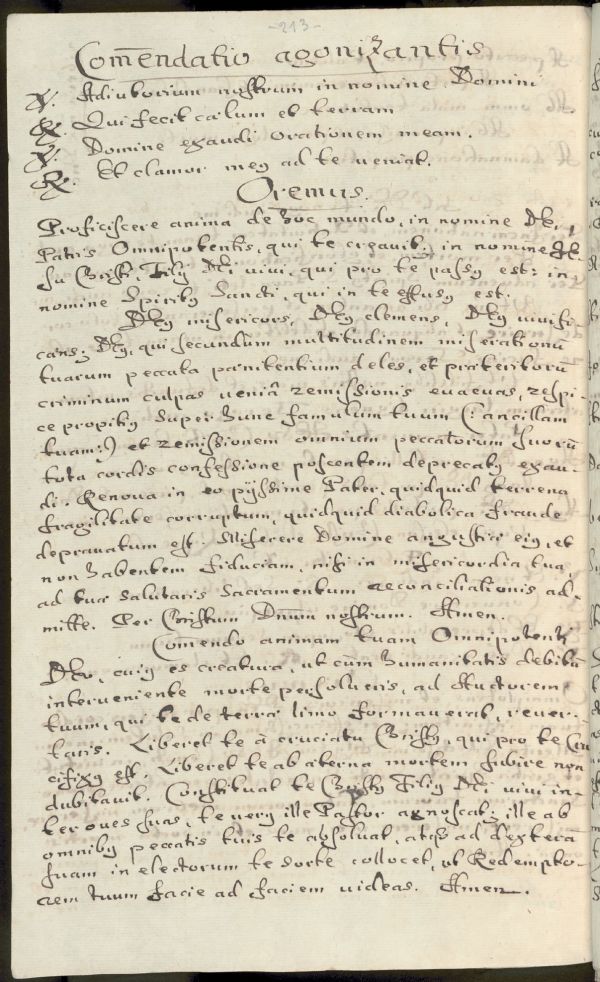 -213-
Com̄endatio agonizantis
℣. Adiutorium nostrum in nomine Domini
℟. Qui fecit cælum et terram
℣. Domine exaudi orationem meam.
℟. Et clamor meꝰ ad te ueniat.
Oremus.
Proficiscere anima de hoc mundo, in nomine Dei,
Patris Omnipotentis, qui te creauit; in nomine Je-
su Christi, Filij Dei uiui, qui pro te passꝰ est: in
nomine Spiritꝰ Sancti, qui in te effusꝰ est.
Deꝰ misericors, Deꝰ clemens, Deꝰ uiuifi-
cans; Deꝰ, qui secundum multitudinem miserationū
tuarum peccata pænitentium deles, et præteritorū
criminum culpas ueniâ remissionis euacuas, respi-
ce propitiꝰ super hunc famulum tuum (: ancillam
tuam:) et remissionem omnium peccatorum suorū
tota cordis confessione poscentem deprecatꝰ exau-
di. Renoua in eo pijssime Pater, quidquid terrena
fragilitate corruptum, quidquid diabolica fraude
deprauatum est. Miserere Domine angustiæ eiꝰ, et
non habentem fiduciam, nisi in misericordia tua,
ad tuæ salutaris Sacramentum reconciliationis ad-
mitte. Per Christum Dnum nostrum. Amen.
Com̄endo animam tuam Omnipotenti
Deo, cuiꝰ es creatura, ut cùm humanitatis debitū
interueniente morte persolueris, ad Auctorem
tuum, qui te de terræ limo formauerat, reuer-
taris. Liberet te à cruciatu Christꝰ, qui pro te Cru
cifixꝰ est. Liberet te ab æterna mortem subire non
dubitauit. Constituat te Christꝰ Filiꝰ Dei uiui in-
ter oues suas, te uerꝰ ille Pastor agnoscat; ille ab
omnibꝰ peccatis tuis te absoluat, atq; ad dexterā
suam in electorum te sorte collocet, ut Redempto-
rem tuum facie ad faciem uideas. Amen.